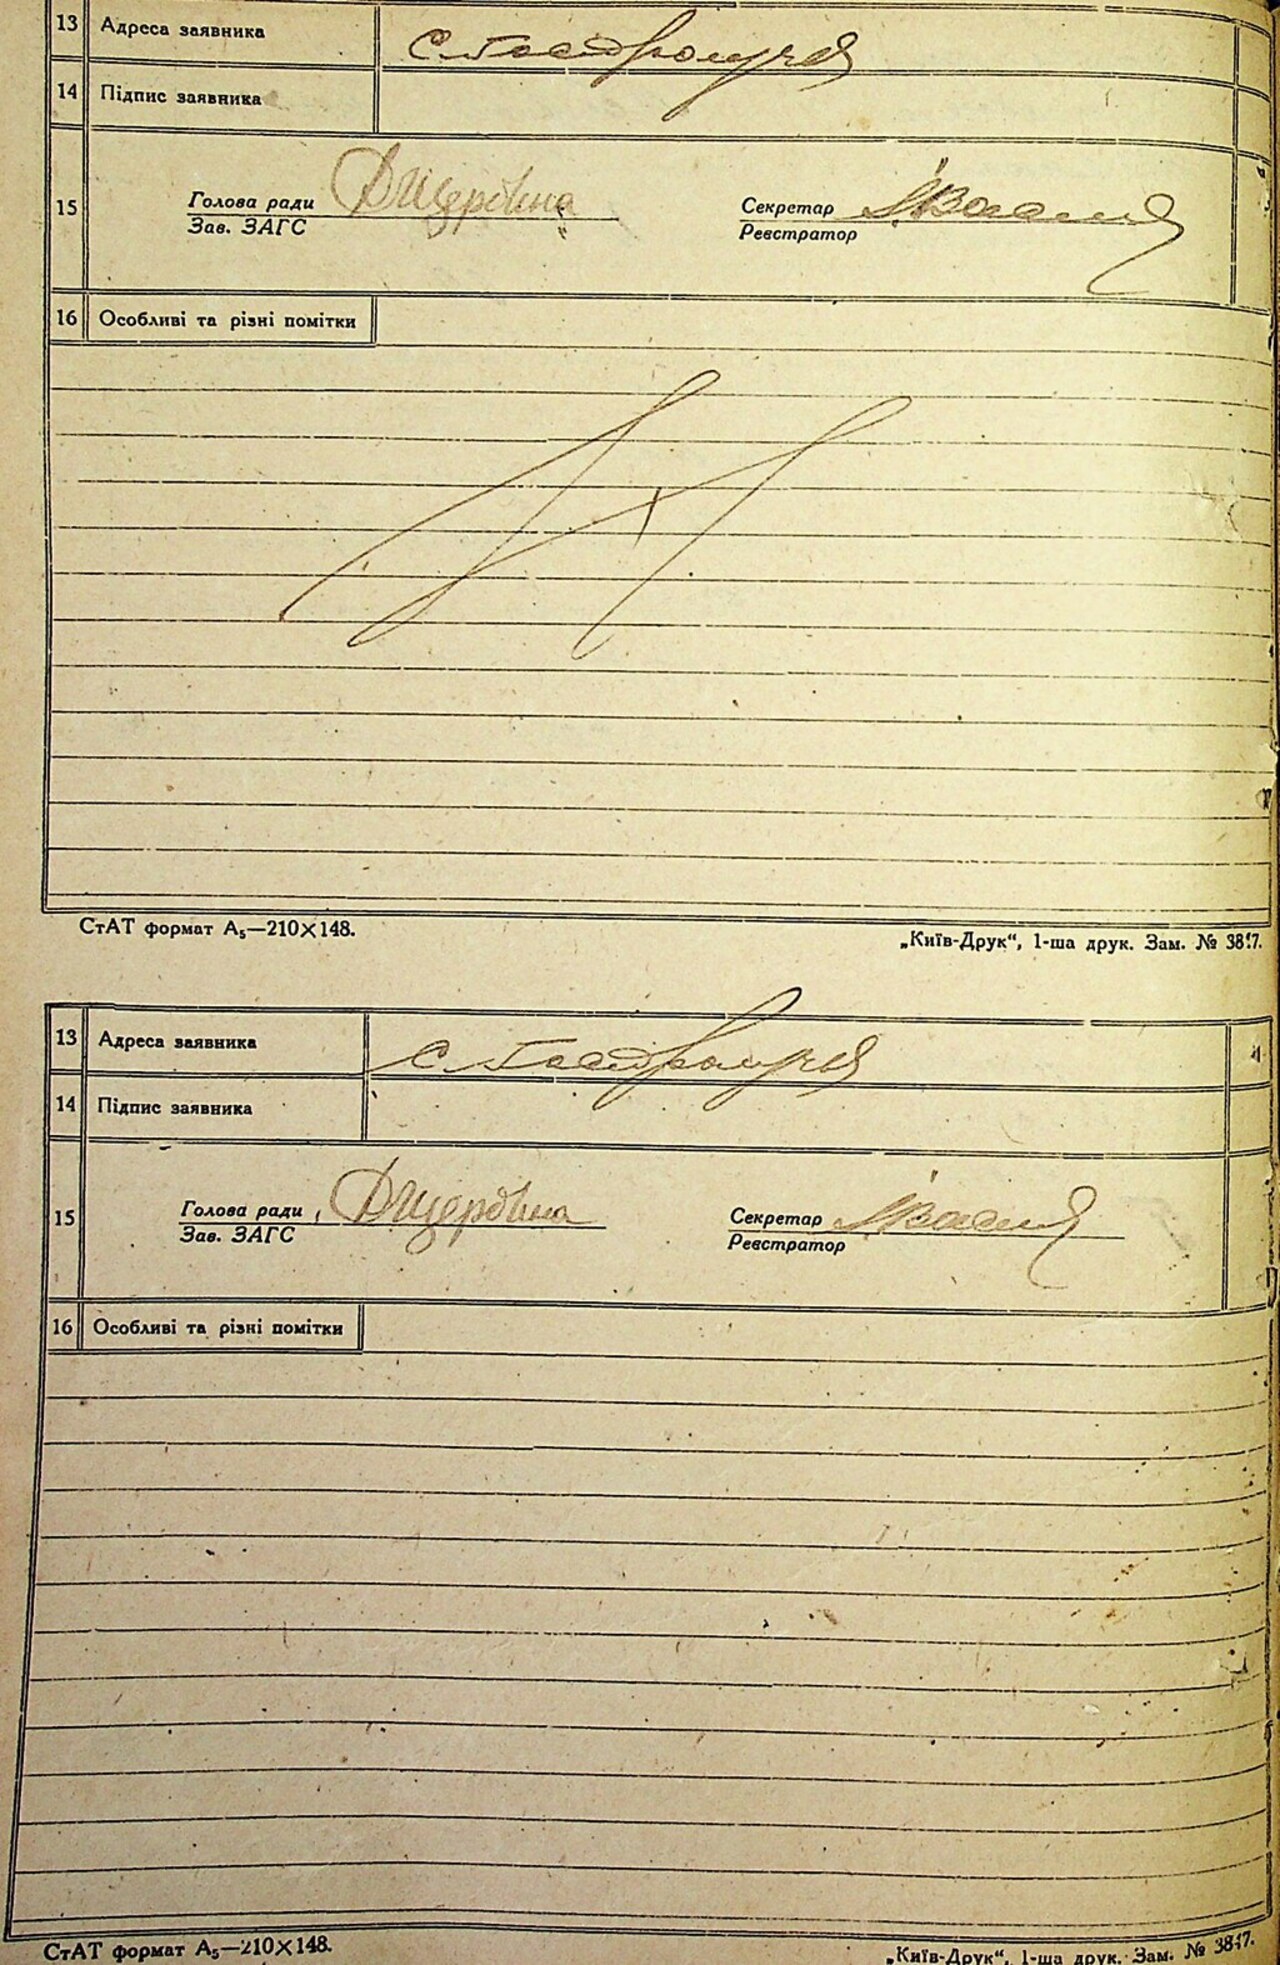 13 Адреса заявника
14 Підпис заявника
15
Голова ради Дщербина Секретар
Зав. ЗАГС Реєстратор
16 Особливі та різні помітки
СтАТ формат А₅—210×148.
„Київ-Друк“, 1-ша друк. Зам. №
13 Адреса заявника
14 Підпис заявника
15
Голова ради Дщербина Секретар
Зав. ЗАГС Реєстратор
16 Особливі та різні помітки
СтАТ формат А₅—210×148.
„Київ-Друк“, 1-ша друк. Зам. №